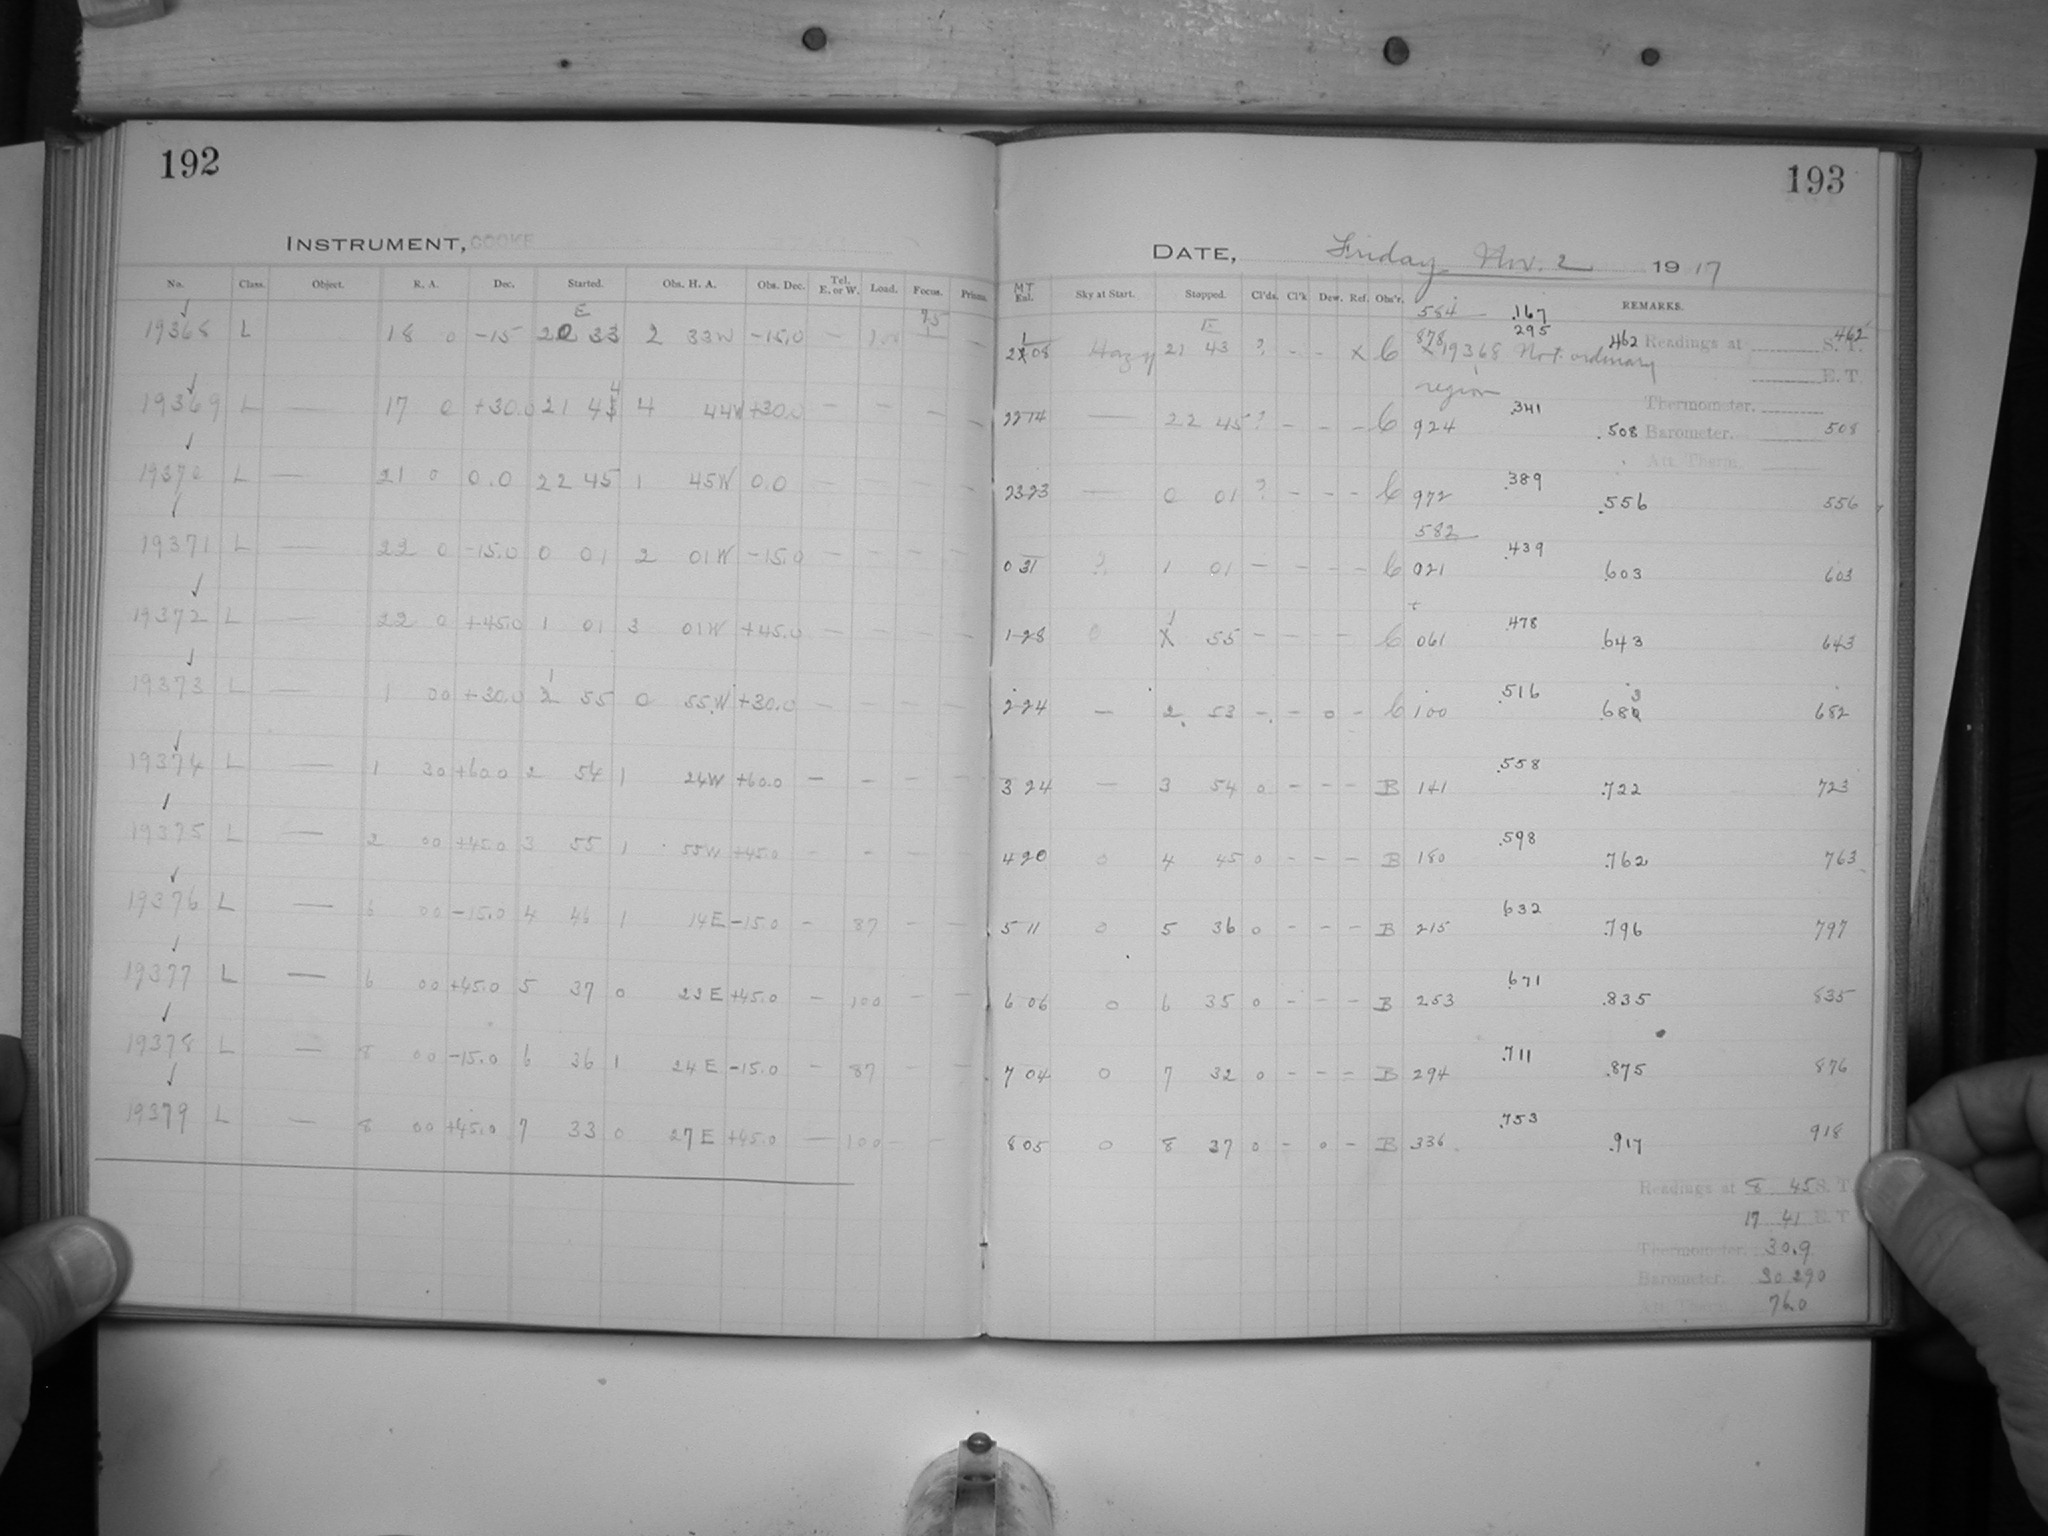 192
INSTRUMENT, COOKE
No. Class. Object. R. A. Dec. Started. Obs. H. A. Obs. Dec. Tel. E. or W. Load. Focus. Prisms.
19368 L 18 0 -15 E 20 33 2 33W -15.0 - 100 75 -
19369 L — 17 0 +30.0 21 44 4 44W +30.0 - - - -
19370 L — 21 0 0.0 22 45 1 45W 0.0 - - - -
19371 L — 22 0 -15.0 0 01 2 01W -15.0 - - - -
19372 L — 22 0 +45.0 1 01 3 01W +45.0 - - - -
19373 L — 1 00 +30.0 1 55 0 55W +30.0 - - - -
19374 L — 1 30 +60.0 2 54 1 24W +60.0 - - - -
19375 L — 2 00 +45.0 3 55 1 55W +45.0 - - - -
19376 L — 6 00 -15.0 4 46 1 14E -15.0 - 87 - -
19377 L — 6 00 +45.0 5 37 0 23E +45.0 - 100 - -
19378 L — 8 00 -15.0 6 36 1 24E -15.0 - 87 - -
19379 L — 8 00 +45.0 7 33 0 27E +45.0 - 100 - -
193
DATE, Friday Nov. 2 1917
MT Eal. Sky at Start. Stopped. Cl'ds. Cl'k Dew. Ref. Obs'r. REMARKS.
584 .167
21 08 Hazy E 21 43 ? - - x C 878 .295 .462 Readings at S. T. 462
x 19368 Not ordinary
region E. T.
Thermometer.
22 14 — 22 45 ? - - - C 924 .341 .508 Barometer. 508
Att. Therm.
23 23 — 0 01 ? - - - C 972 .389 .556 556
582
0 31 ? 1 01 - - - - C 021 .439 .603 603
1 28 0 1 55 - - - - C 061 .478 .643 643
2 24 — 2 53 - - 0 - C 100 .516 .683 682
3 24 — 3 54 0 - - - B 141 .558 .722 723
4 20 0 4 45 0 - - - B 180 .598 .762 763
5 11 0 5 36 0 - - - B 215 .632 .796 797
6 06 0 6 35 0 - - - B 253 .671 .835 835
7 04 0 7 32 0 - - - B 294 .711 .875 876
8 05 0 8 37 0 - 0 - B 336 .753 .917 918
Readings at 8 45 S. T.
17 41 E. T.
Thermometer. 30.9
Barometer. 30 290
Att. Therm. 76.0